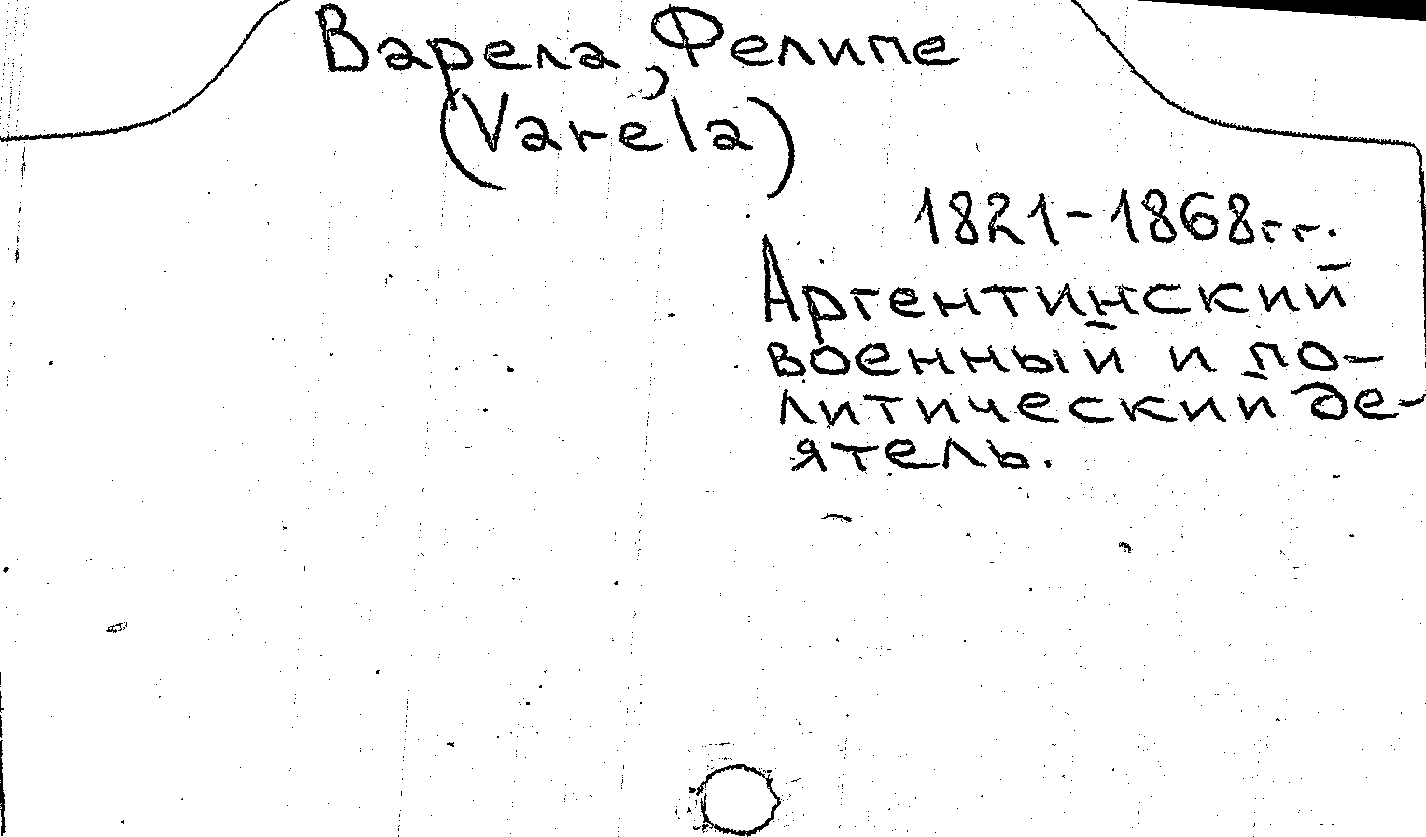 Варела, Фелипе
(Varela)
1821-1868гг.
Аргентинский
военный и по-
литический де-
ятель.